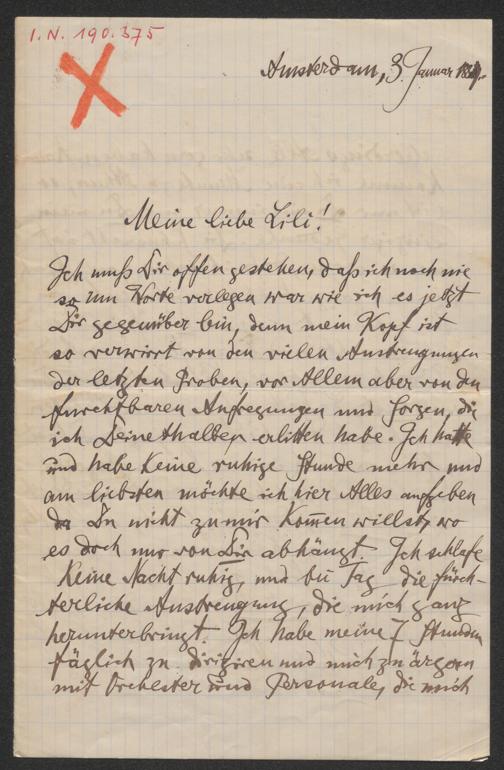 I.N. 190.375
Amsterdam, 3. Januar
Meine liebe Lili!
Ich muß Dir offen gestehen, daß ich noch nie
so um Worte verlegen war wie ich es jetzt
Dir gegenüber bin, denn mein Kopf ist
so verwirrt von den vielen Anstrengungen
der letzten Proben, vor Allem aber von den
furchtbaren Aufregungen und Sorgen, die
ich Deinethalber erlitten habe. Ich hatte
und habe keine ruhige Stunde mehr und
am liebsten möchte ich hier Alles aufgeben
da Du nicht zu mir kommen willst, wo
es doch nur von Dir abhängt. Ich schlafe
keine Nacht ruhig, und bei Tag die fürch-
terliche Anstrengung, die mich ganz
herunterbringt. Ich habe meine 7 Stunden
täglich zu dirigiren und mich zu ärgern
mit Orchester und Personale, die mich